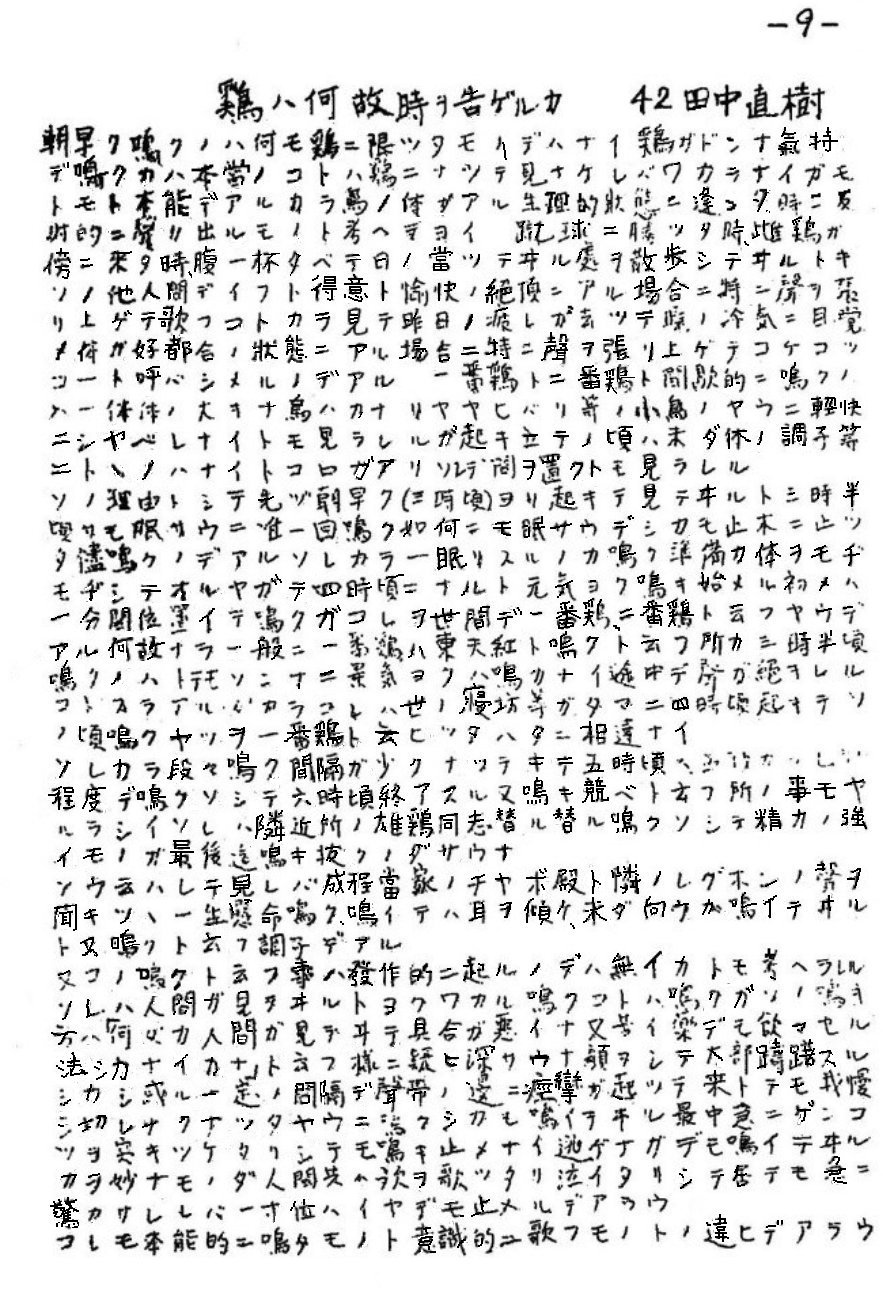 -9-
鶏ハ何故時ヲ告ゲルカ 42田中直樹
朝早ク鳴クノハ何モ鶏ニ限ツタモノデハナイ鶏ガドンナ氣持
デ鳴クカハ本當ノコトハ鶏ニナツテ見ナケレバワカラナイガモ
トモト本能デアルカラ鳥ノ体ガアル生理的狀態ニ逢ツタ時ニ反
射的ニ發リ出ルモノト考ヘテヨイ 蹴球ニ勝ツタ時、雌鶏ガ
傍ニ來タ時、腹一杯タベテ日ノ當ツテヰル處ヲ散歩シテヰルトキ
ソノ他人間デイフト得意ト愉快ノ絶頂ニアル場合ニ特ニ聲ヲ張
リ上ゲテ歌フコトカラ見テ昨日ノ疲レガ去ツテ暁ノ冷気ニ目覚
メ体ガ好都合ノ狀態ニアル場合ニ特ニ聲ヲ張リ上ゲテコケコツ
コート呼バシメルノデアル 一番鶏ト二番鶏ト間歇的ニ鳴クノ
ハ一体体ノ大キナ鳥ハカナリヤヤヒバリ等ノ小鳥ノヤウニ輕快
ニシヤベレナイトモ見ラレルガ起キ立テノ頃ハ未ダ休ノ調子等
ニトヽノハナイトコロガアリソレデ間ヲ置クトモ見ラレル
ソノ理由トシテ先ヅ朝早ク(三時頃)ヨリ起キテ見テヰルト三時半
頃モ眠サウニ唯一回鳴ク如何ニモ眠サウデシカモ止木ニ止ツ
タ儘鳴クノデアルソレカラ一眠リスルノカ鳴ク準満カ体ヲモヂ
モヂシテオルヤガテ四時頃ニナルト元気ヨク鳴キ始メル初メハ
一分間位置イテ鳴クガコレヲ世間デ一番鶏二番鶏ト云フヤウデ
アル何故ナラ一般ニ鶏ハ東天紅ト鳴クト云フ所カ三時半頃
鳴クノハトテモソンナニ景気ヨクハ鳴カナイ途中デ聲ガ絶ヲレル
コトスラアル カラコレハ世ノ寝坊等ガタマニ四時頃起キテソ
ノ頃鳴クヤツヲ一番鶏ト云ヒ 相違ナイ
ソレカラ段々鳴ク間隔ガ少ナツテキテ五時頃ハ
程度デ鳴クソシテ六時頃終 スル又鳴キ競ベト云フ所ノ事モヤ
ルラシイソレハ隣近所ノ雄鶏同志替ル替ル鳴クソシテ精力ノ強
イモノガ最後迄鳴キ抜クノダサウナ
ソウ云ハレテ見レバ成程當家ノチヤボ殿ト隣ノレグホンノ聲ヲ
聞キ 生懸命鳴ク、鳴イテハ耳ヲ傾ケ、未ダ向ウガ鳴イテヰル
ト又鳴クト云フ調子デアル
又コノ鳴クト云フ事ハ發作的ニ起ルノデハ無イカトモ考ヘラレル
ソレハ人間ガ見タヰルトヨクワカルガ鳴クコトハ鳴クガソノ鳴キ
方ハ何ダカ人間ガ見テヰテ具合ガ悪イナ又苦イ薬デモ飲マセル
法シカナイカナト云フ様ニ疑ヒ深サウナ頭ヲシテ大部躊躇スル
シカシ或ル一定ノ間隔デ聲帯ノ邊ニ痙攣ガ起ツテ来テトモ我慢
シ切レナクナツタヤウニ鳴クシカモ鳴イテヰル最中急ニゲンコ
ツヲ突キツケタリシテモ鳴キ止メナイ逃ゲナガラデモ鳴イテヰル
カヲ妙ナモノダ人間共ハ歌ヲ歌ツタリ泣イタリシテ居テモ急ニ
驚カサレレバ一寸位ハイヤデモ止メルデアラウ
コレモ本能的ニ鳴クモノト意識的ニ歌フモノトノ違ヒデアラウ